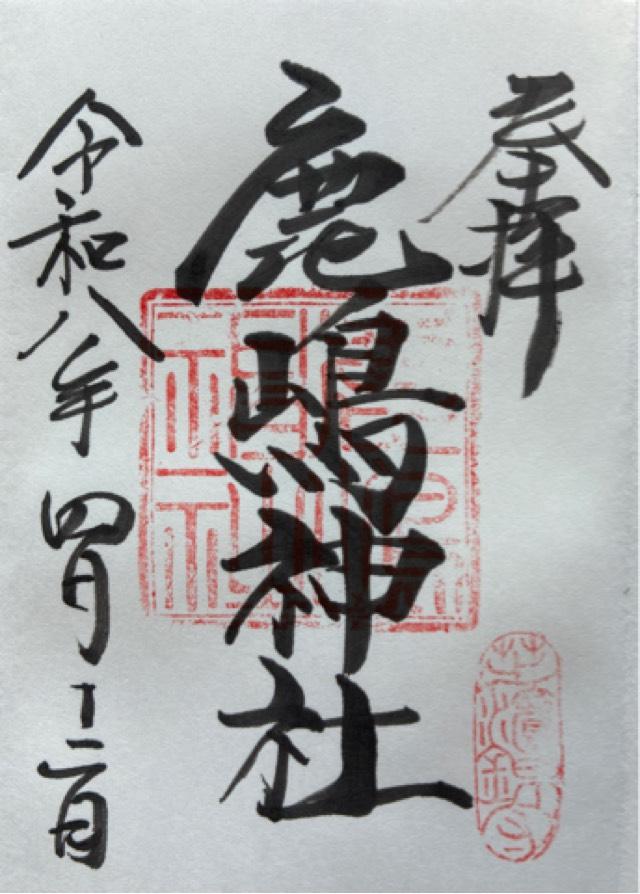 奉拝
鹿嶋神社
令和八年四月十二日